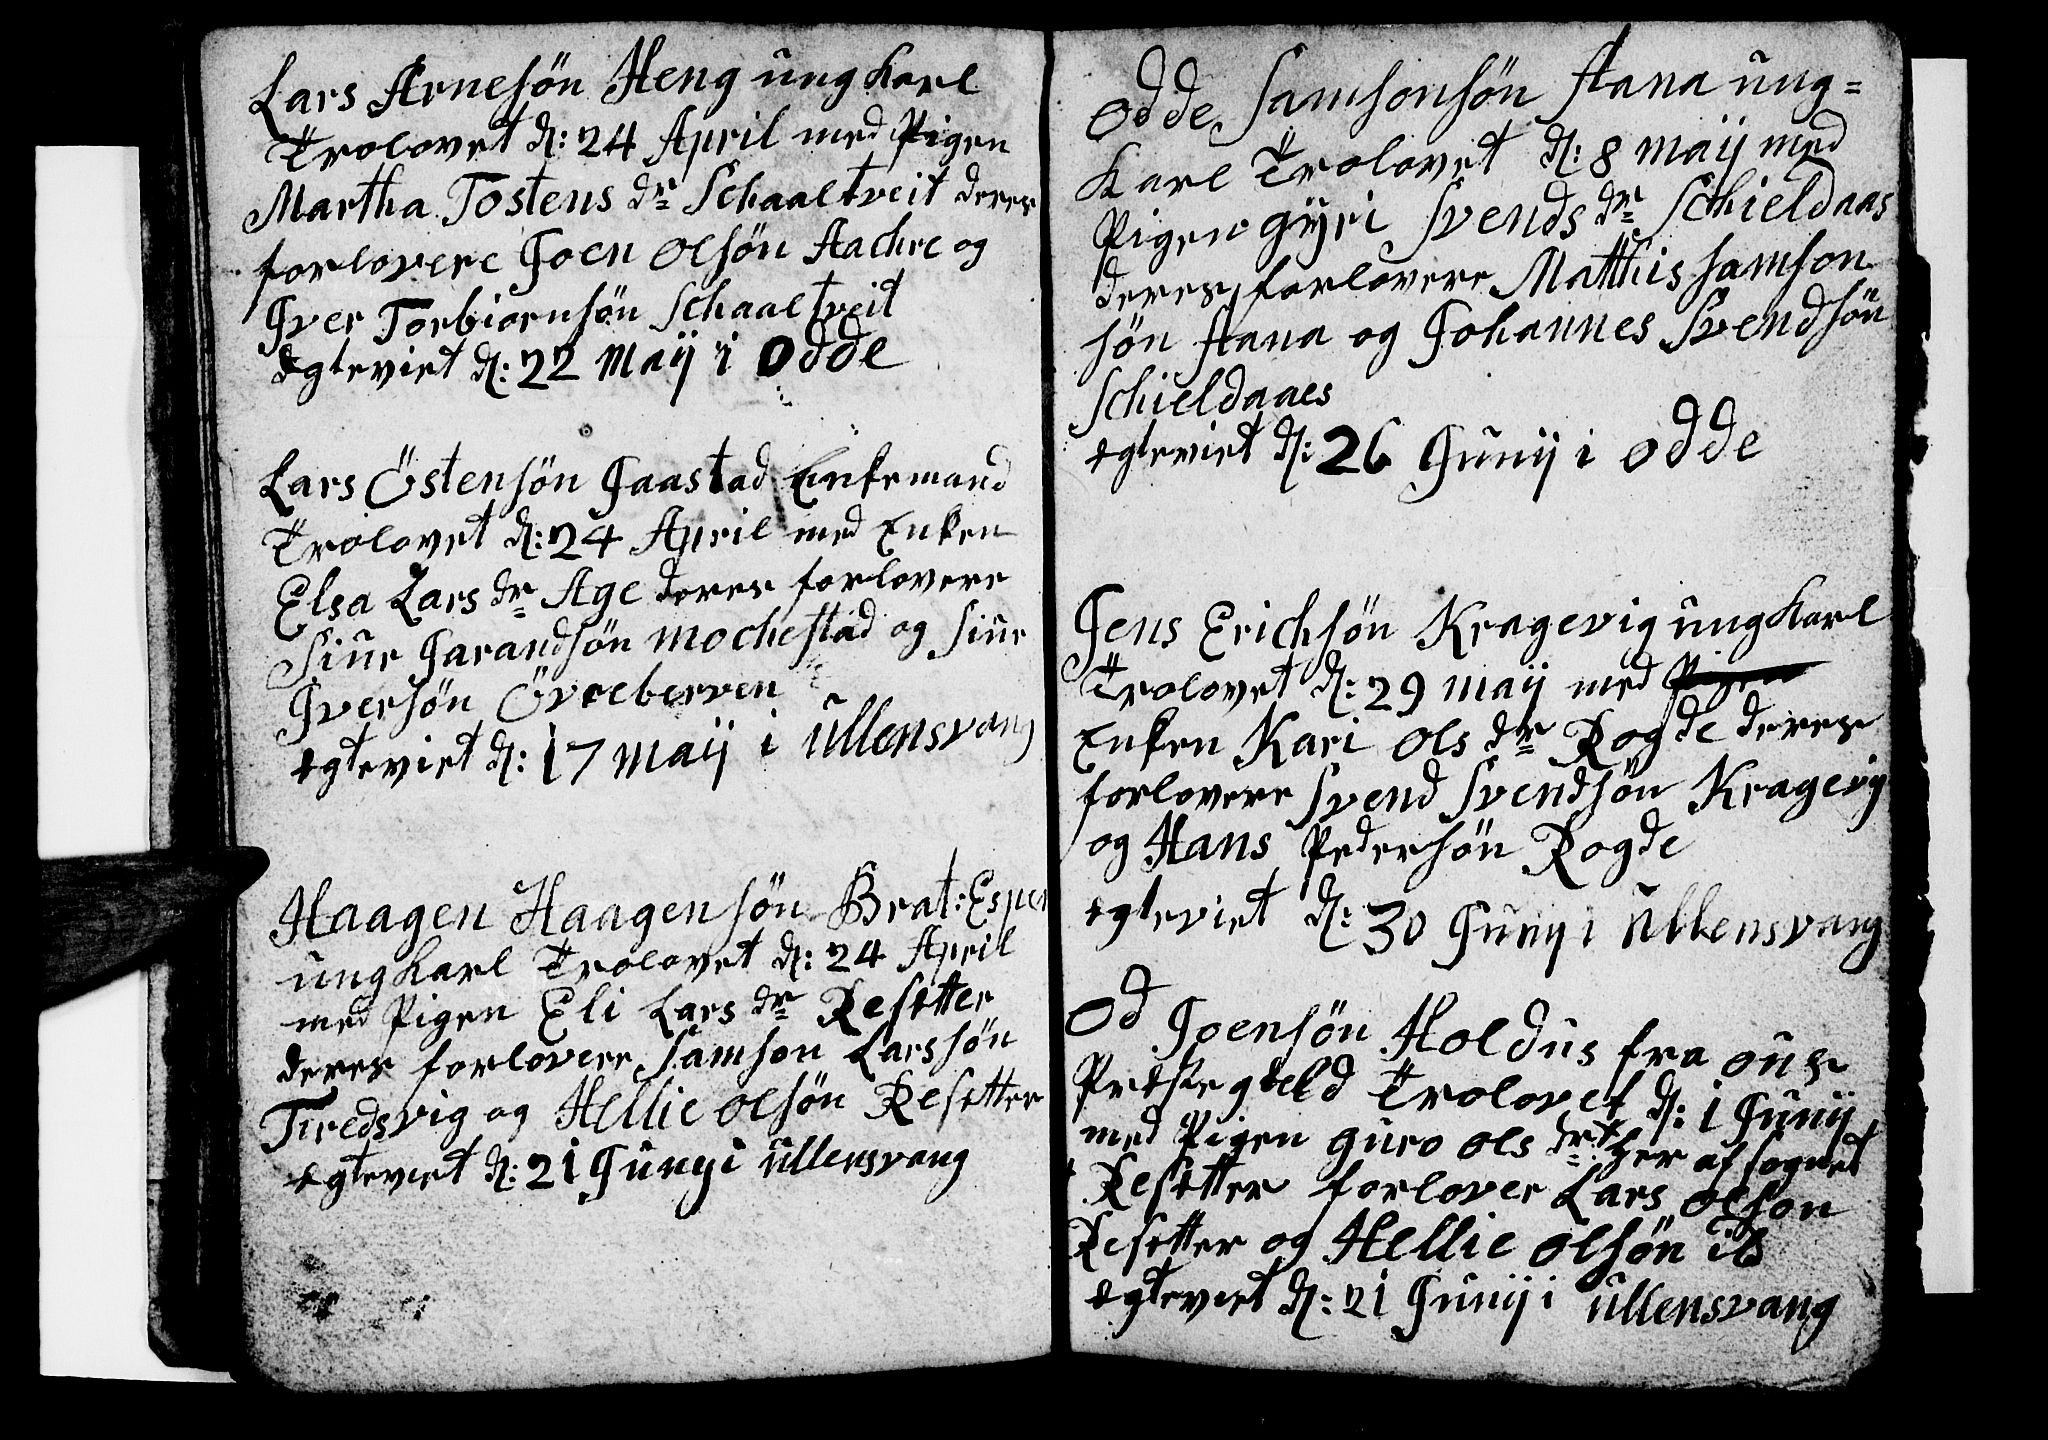 Lars Arnesøn Heng ungkarl
Trolovet d: 24 April med Pigen
Martha Tostens dr Schaaltveit deres
forlovere Joen Olsøn Aachre og
Iver Torbiørnsøn Schaaltveit
Egteviet d: 22 Maij i Odde
Lars Östensøn Jaastad Enkemand
Trolovet d: 24 April med Enken
Elsa Lars dr Age deres forlovere
Siur Jarandsøn Mochestad og Siur
Iversøn Övreberven
Egteviet d: 17 Maij i Ullensvang
Haagen Haagensøn Brat:Espen
ungkarl Trolovet d: 24 April
med Pigen Eli Lars dr Resetter
deres forlovere Samson Larssøn
Tiredsvig og Hellie Olsøn Resetter
Egteviet d: 21 Junij i Ullensvang
Odde Samsonsøn Aana ung=
karl Trolovet d: 8 Maij med
Pigen Gyri Svends dr Schieldaas
deres forlovere Matthis Samson
søn Aana og Johannes Svendsøn
Schieldaaes
Egteviet d: 26 Junij i Odde
Jens Erichsøn Kragevig ungkarl
Trolovet d: 29 Maij med Pigen
Enken Kari Ols dr Rogde deres
forlovere Svend Svendsøn Kragevig
og Hans Pedersøn Rogde
Egteviet d: 30 Junij i Ullensvang
Od Joensøn Holdus fra Ous
Præstegield Trolovet d: 1 Junij
med Pigen Guro Ols dr her af sognet
Resetter forlover Lars Olson
Resetter og Hellie Olsøn ib
Egteviet d: 21 Junij i Ullensvang